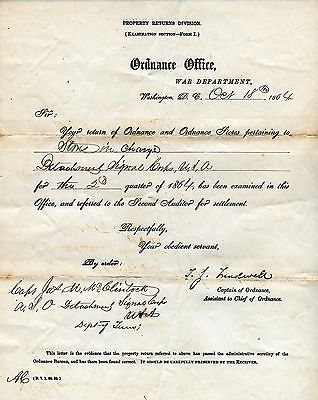 PROPERTY RETURNS DIVISION.
(EXAMINATION SECTION—FORM I.)
Ordnance Office,
WAR DEPARTMENT,
Washington, D. C., Oct 18th 1864
Sir:
Your return of Ordnance and Ordnance Stores pertaining to
Stores in charge
Detachment Signal Corps, U.S.A
for the 2d quarter of 1864, has been examined in this
Office, and referred to the Second Auditor for settlement.
Respectfully,
Your obedient servant,
By order:
T. J. Treadwell
Captain of Ordnance,
Assistant to Chief of Ordnance.
Capt Jas M. McClintock
A.S.O Detachment Signal Corps
USA
Dept of Tenn
This letter is the evidence that the property return referred to above has passed the administrative scrutiny of the
Ordnance Bureau, and has there been found correct. IT SHOULD BE CAREFULLY PRESERVED BY THE RECEIVER.